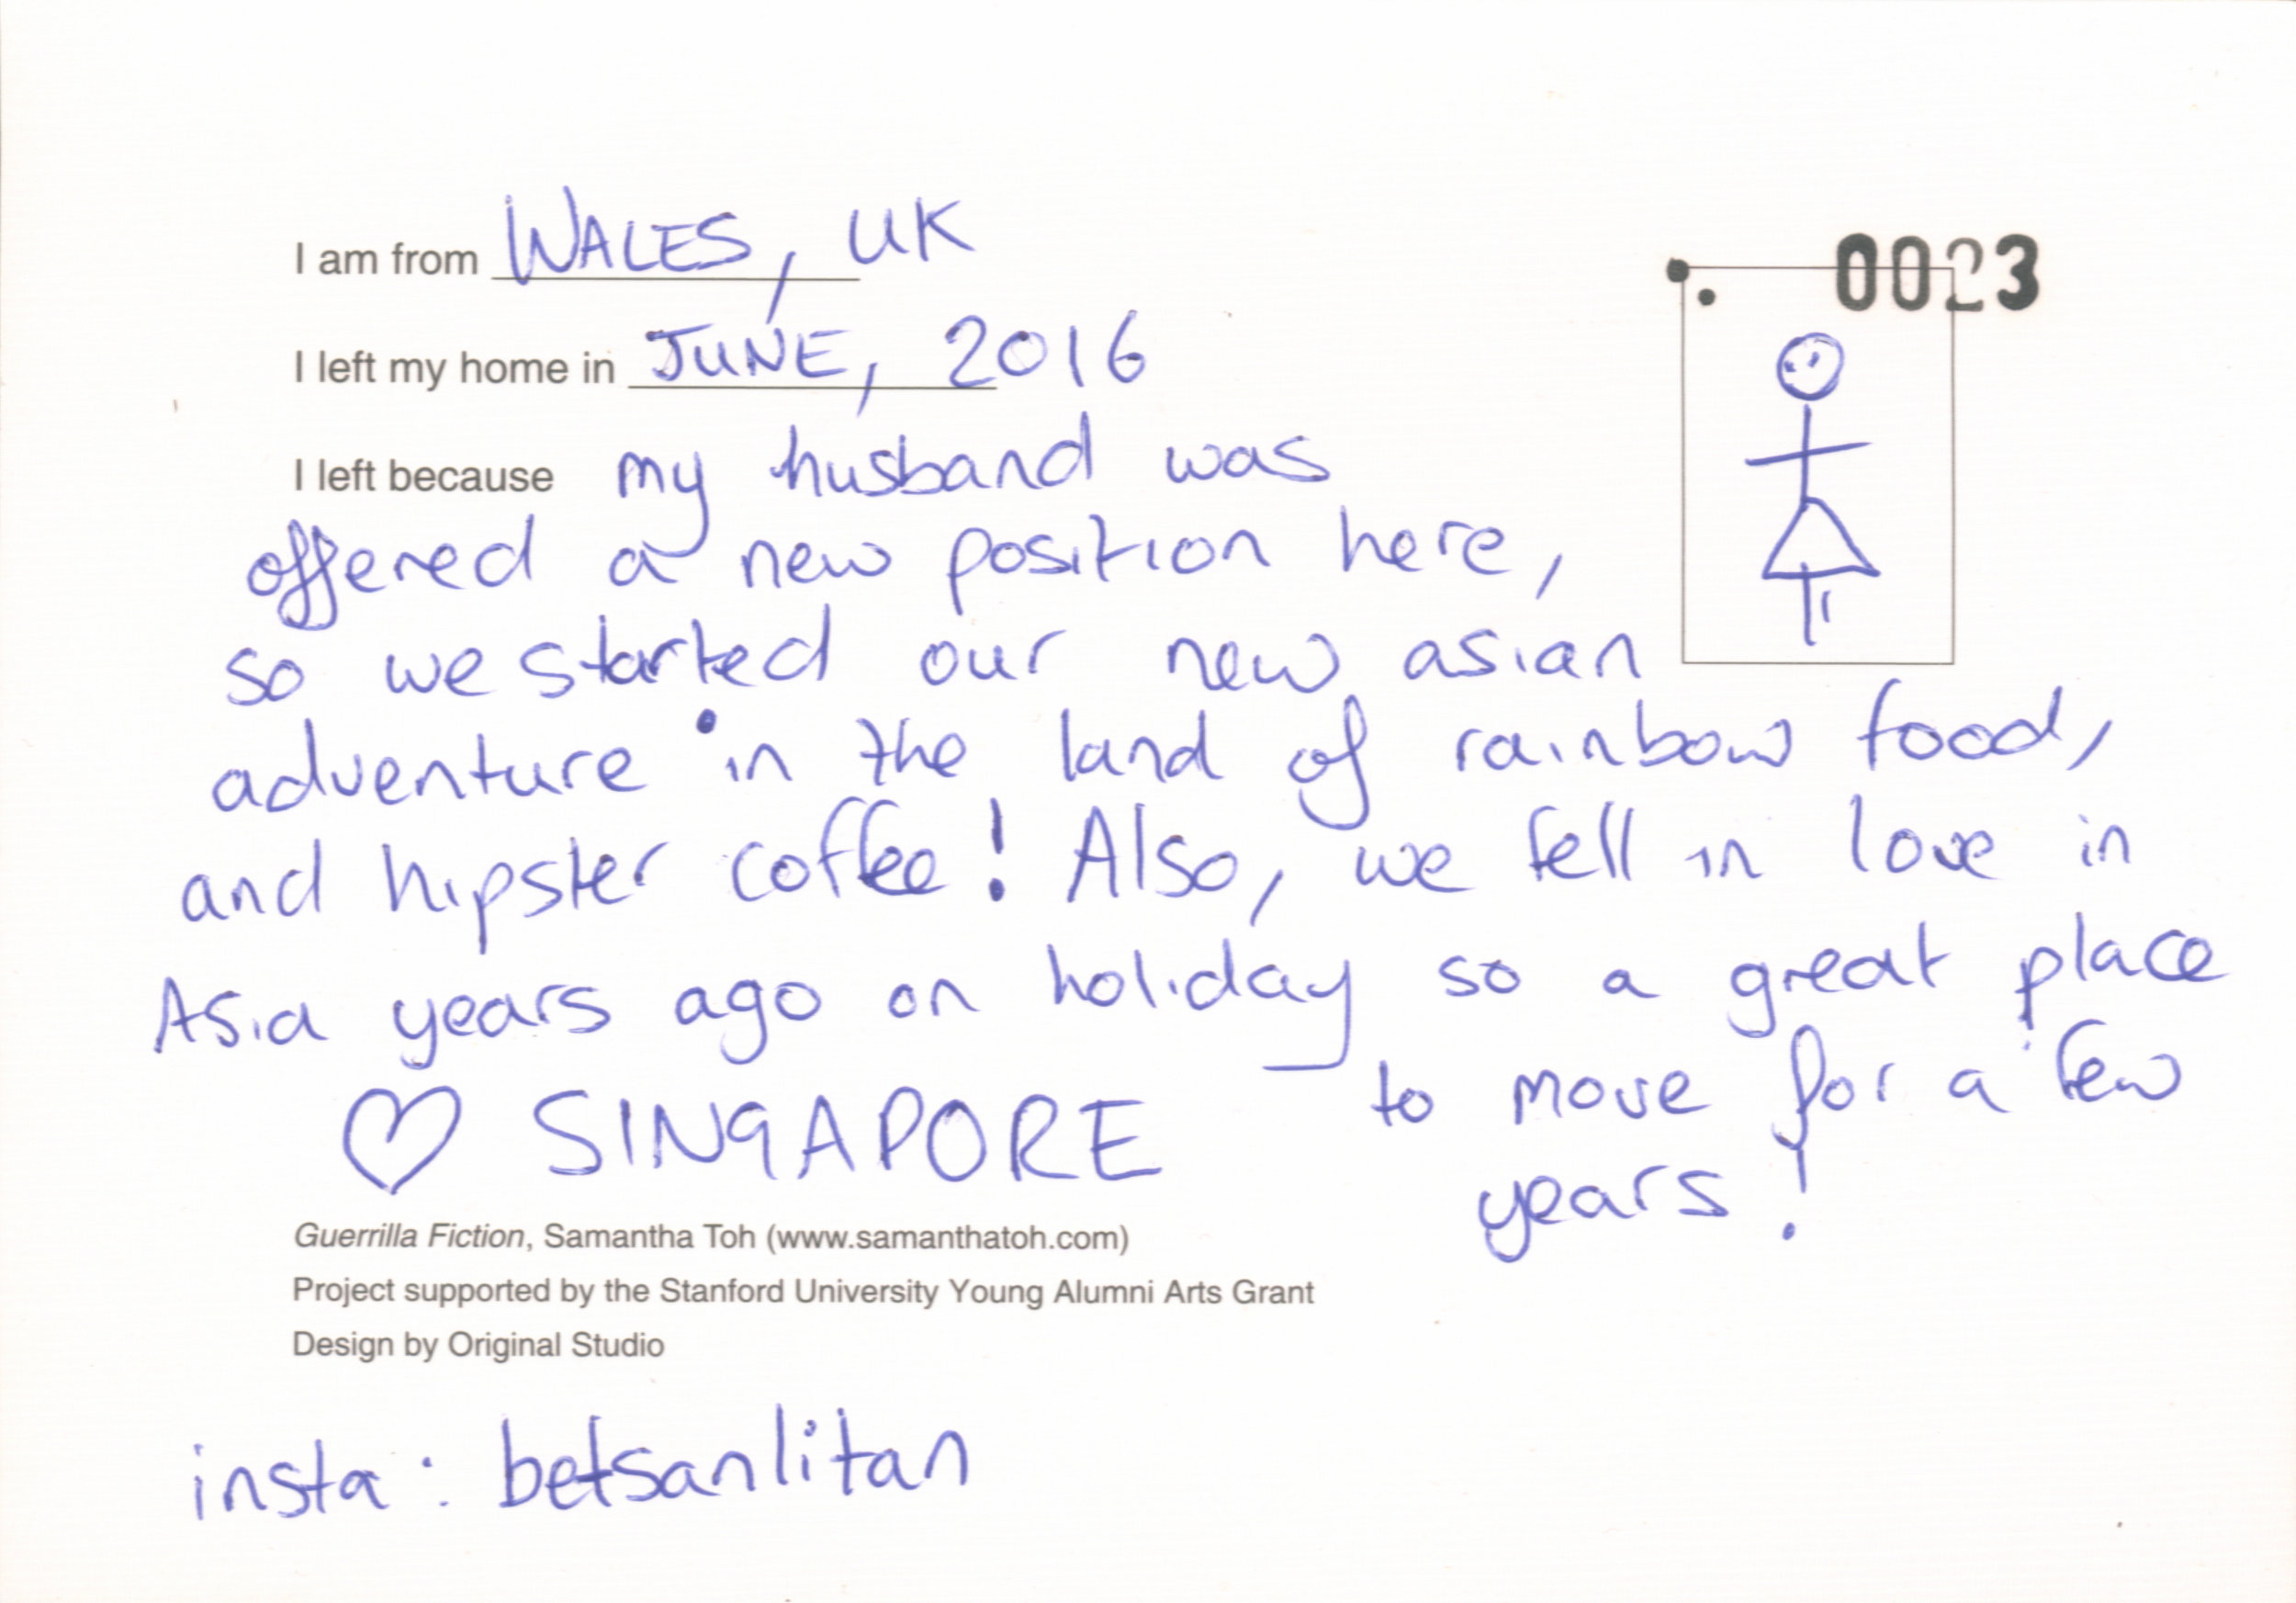 I am from WALES, UK
0023
I left my home in JUNE, 2016
I left because my husband was
offered a new position here,
so we started our new asian
adventure in the land of rainbow food,
and hipster coffee! Also, we fell in love in
Asia years ago on holiday so a great place
to move for a few
years!
♡ SINGAPORE
Guerrilla Fiction, Samantha Toh (www.samanthatoh.com)
Project supported by the Stanford University Young Alumni Arts Grant
Design by Original Studio
insta: betsanlitan